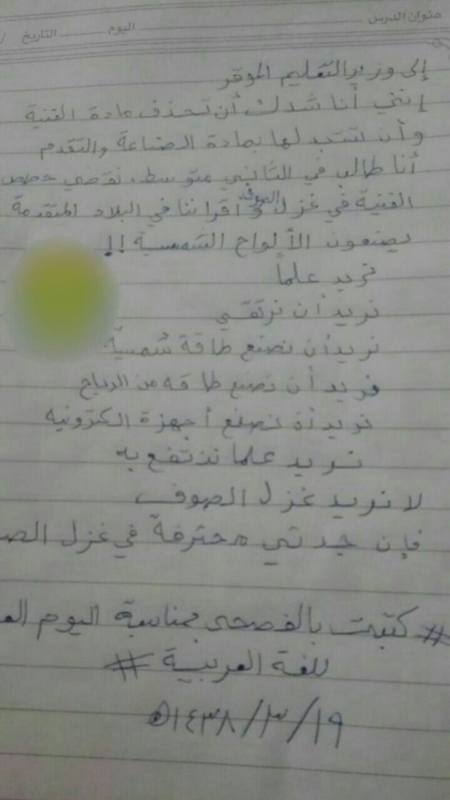 عنوان الدرس اليوم التاريخ /
إلى وزير التعليم الموقر
إنني أناشدك أن تحذف مادة الفنية
وأن تستبدلها بمادة الصناعة والتقدم
أنا طالب في الثاني متوسط، نقضي حصص
الفنية في غزل الصوف و أقراننا في البلاد المتقدمة
يصنعون الألواح الشمسية !!
نريد علماً
نريد أن نرتقي
نريد أن نصنع طاقة شمسية
نريد أن نصنع طاقه من الرياح
نريد أن نصنع أجهزة الكترونيه
نريد علما ننتفع به
لا نريد غزل الصوف
فإن جدتي محترفة في غزل الصـ
# كتبت بالفصحى بمناسبة اليوم العـ
للغة العربية #
١٤٣٨/٣/١٩ه